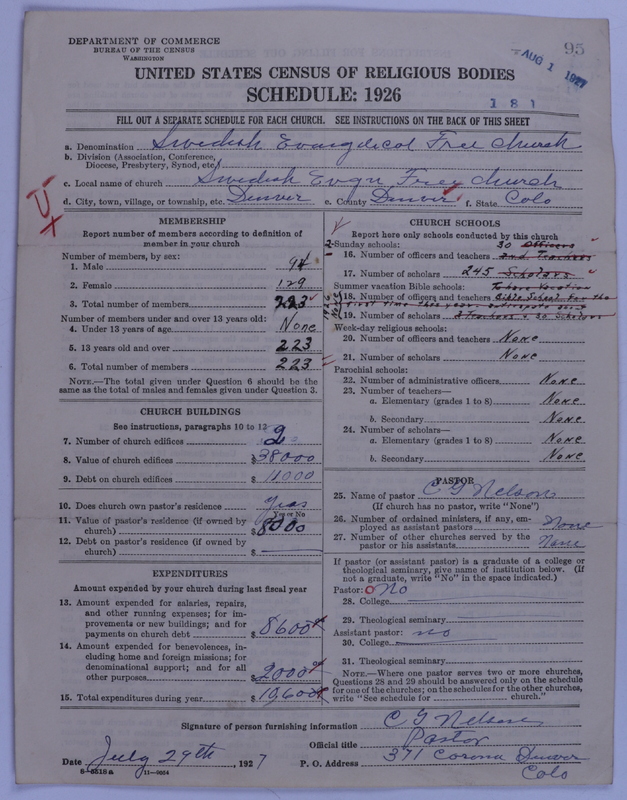 DEPARTMENT OF COMMERCE
BUREAU OF THE CENSUS
WASHINGTON
95
AUG 1 1927
UNITED STATES CENSUS OF RELIGIOUS BODIES
SCHEDULE: 1926
181
FILL OUT A SEPARATE SCHEDULE FOR EACH CHURCH. SEE INSTRUCTIONS ON THE BACK OF THIS SHEET
a. Denomination Swedish Evangelical Free Church
b. Division (Association, Conference, Diocese, Presbytery, Synod, etc.)
c. Local name of church Swedish Evgn. Free Church
d. City, town, village, or township, etc. Denver e. County Denver f. State Colo
MEMBERSHIP
Report number of members according to definition of member in your church
Number of members, by sex:
1. Male 94
2. Female 129
3. Total number of members 223
Number of members under and over 13 years old:
4. Under 13 years of age None
5. 13 years old and over 223
6. Total number of members 223
NOTE.—The total given under Question 6 should be the same as the total of males and females given under Question 3.
CHURCH BUILDINGS
See instructions, paragraphs 10 to 12
7. Number of church edifices 2
8. Value of church edifices $38000
9. Debt on church edifices $11000
10. Does church own pastor's residence Yeas
Yes or No
11. Value of pastor's residence (if owned by church) $8000
12. Debt on pastor's residence (if owned by church) $
EXPENDITURES
Amount expended by your church during last fiscal year
13. Amount expended for salaries, repairs, and other running expenses; for improvements or new buildings; and for payments on church debt $8600
14. Amount expended for benevolences, including home and foreign missions; for denominational support; and for all other purposes $2000
15. Total expenditures during year $10,600
CHURCH SCHOOLS
Report here only schools conducted by this church
2 Sunday schools: 30 Officers
16. Number of officers and teachers and Teachers
17. Number of scholars 245 Scholars
Summer vacation Bible schools:
18. Number of officers and teachers Bible School for the
first time this year
19. Number of scholars 3 Teachers + 30 Scholars
Week-day religious schools:
20. Number of officers and teachers None
21. Number of scholars None
Parochial schools:
22. Number of administrative officers None
23. Number of teachers—
a. Elementary (grades 1 to 8) None
b. Secondary None
24. Number of scholars—
a. Elementary (grades 1 to 8) None
b. Secondary None
PASTOR
25. Name of pastor C G Nelson
(If church has no pastor, write "None")
26. Number of ordained ministers, if any, employed as assistant pastors None
27. Number of other churches served by the pastor or his assistants None
If pastor (or assistant pastor) is a graduate of a college or theological seminary, give name of institution below. (If not a graduate, write "No" in the space indicated.)
Pastor: No
28. College
29. Theological seminary
Assistant pastor: no
30. College
31. Theological seminary
NOTE.—Where one pastor serves two or more churches, Questions 28 and 29 should be answered only on the schedule for one of the churches; on the schedules for the other churches, write "See schedule for church."
Signature of person furnishing information C G Nelson
Official title Pastor
Date July 29th, 1927 P. O. Address 371 Corona Denver
Colo
8-5518a 11-9054